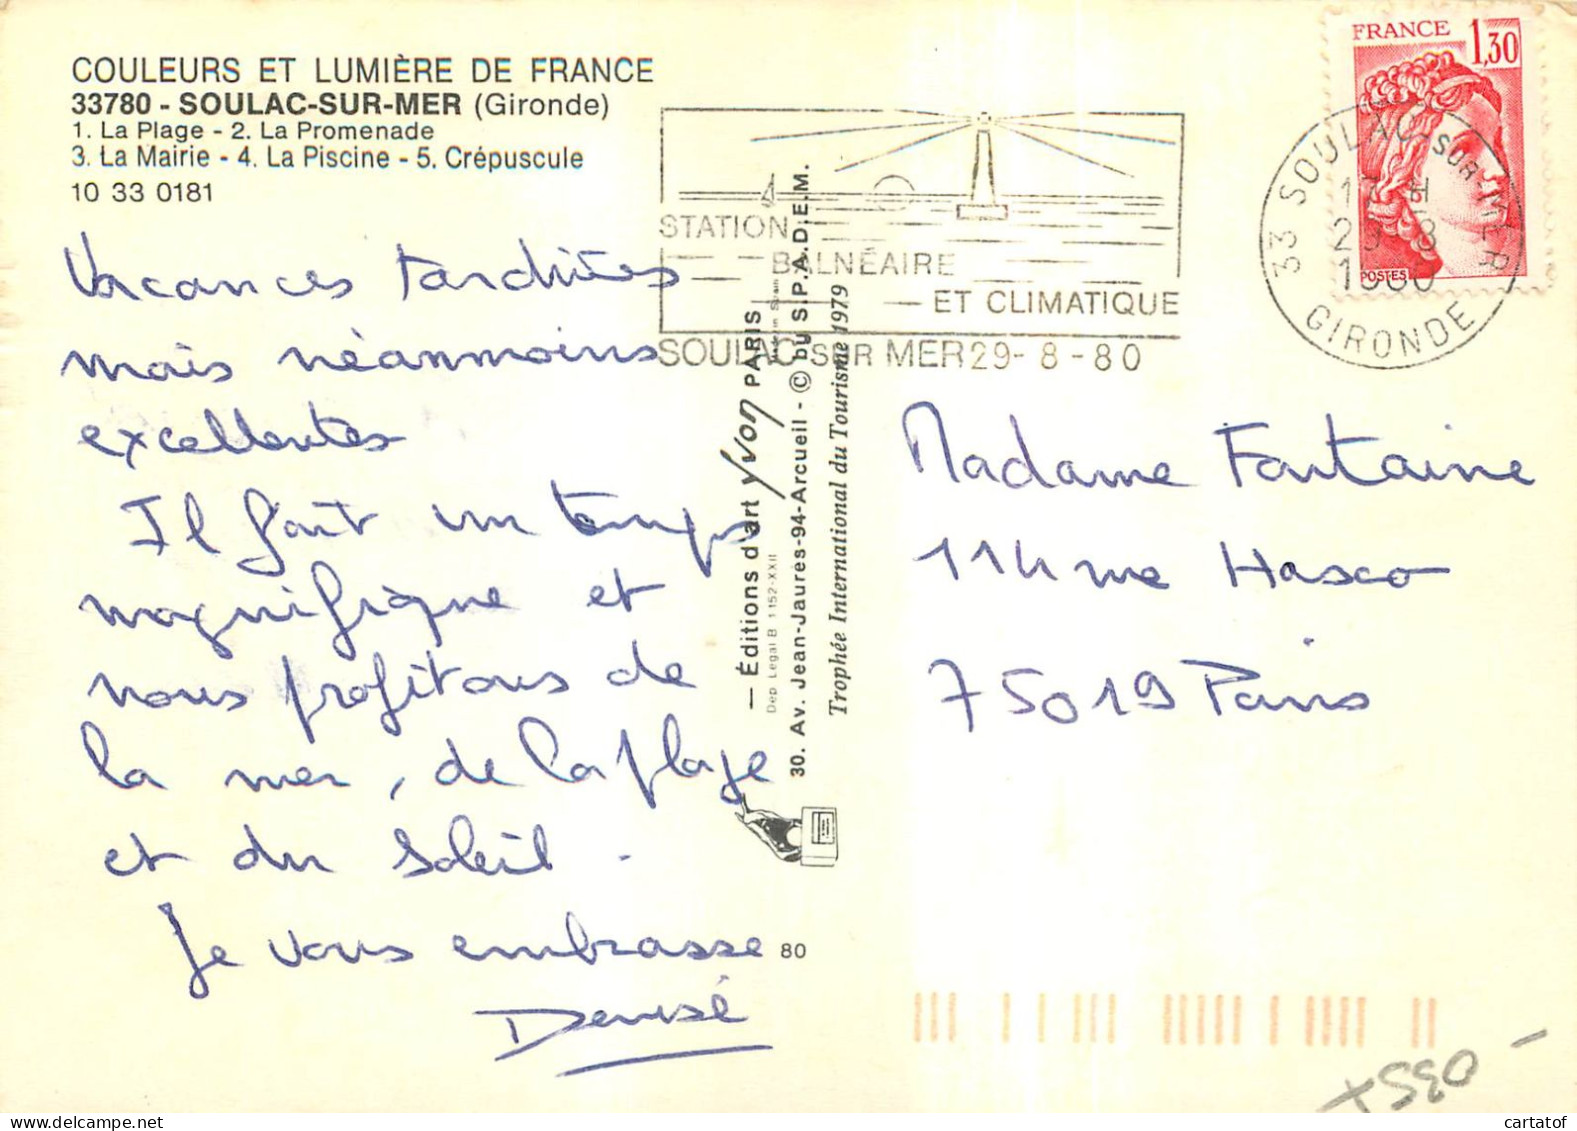 COULEURS ET LUMIÈRE DE FRANCE
33780 - SOULAC-SUR-MER (Gironde)
1. La Plage - 2. La Promenade
3. La Mairie - 4. La Piscine - 5. Crépuscule
10 33 0181
Vacances tardives
mais néanmoins
excellentes
Il fait un temps
magnifique et
nous profitons de
la mer, de la plage
et du soleil.
Je vous embrasse
Denise
STATION
BALNÉAIRE
ET CLIMATIQUE
SOULAC SUR MER 29-8-80
— Éditions d'art Yvon PARIS
Dep Légal B 1152-XXII
30. Av. Jean-Jaurès-94-Arcueil - © by S.P.A.D.E.M.
Trophée International du Tourisme 1979
80
FRANCE
1,30
POSTES
33 SOULAC-SUR-MER
17 H
29-8
1980
GIRONDE
Madame Fontaine
114 rue Hasco
75019 Paris
cartatof